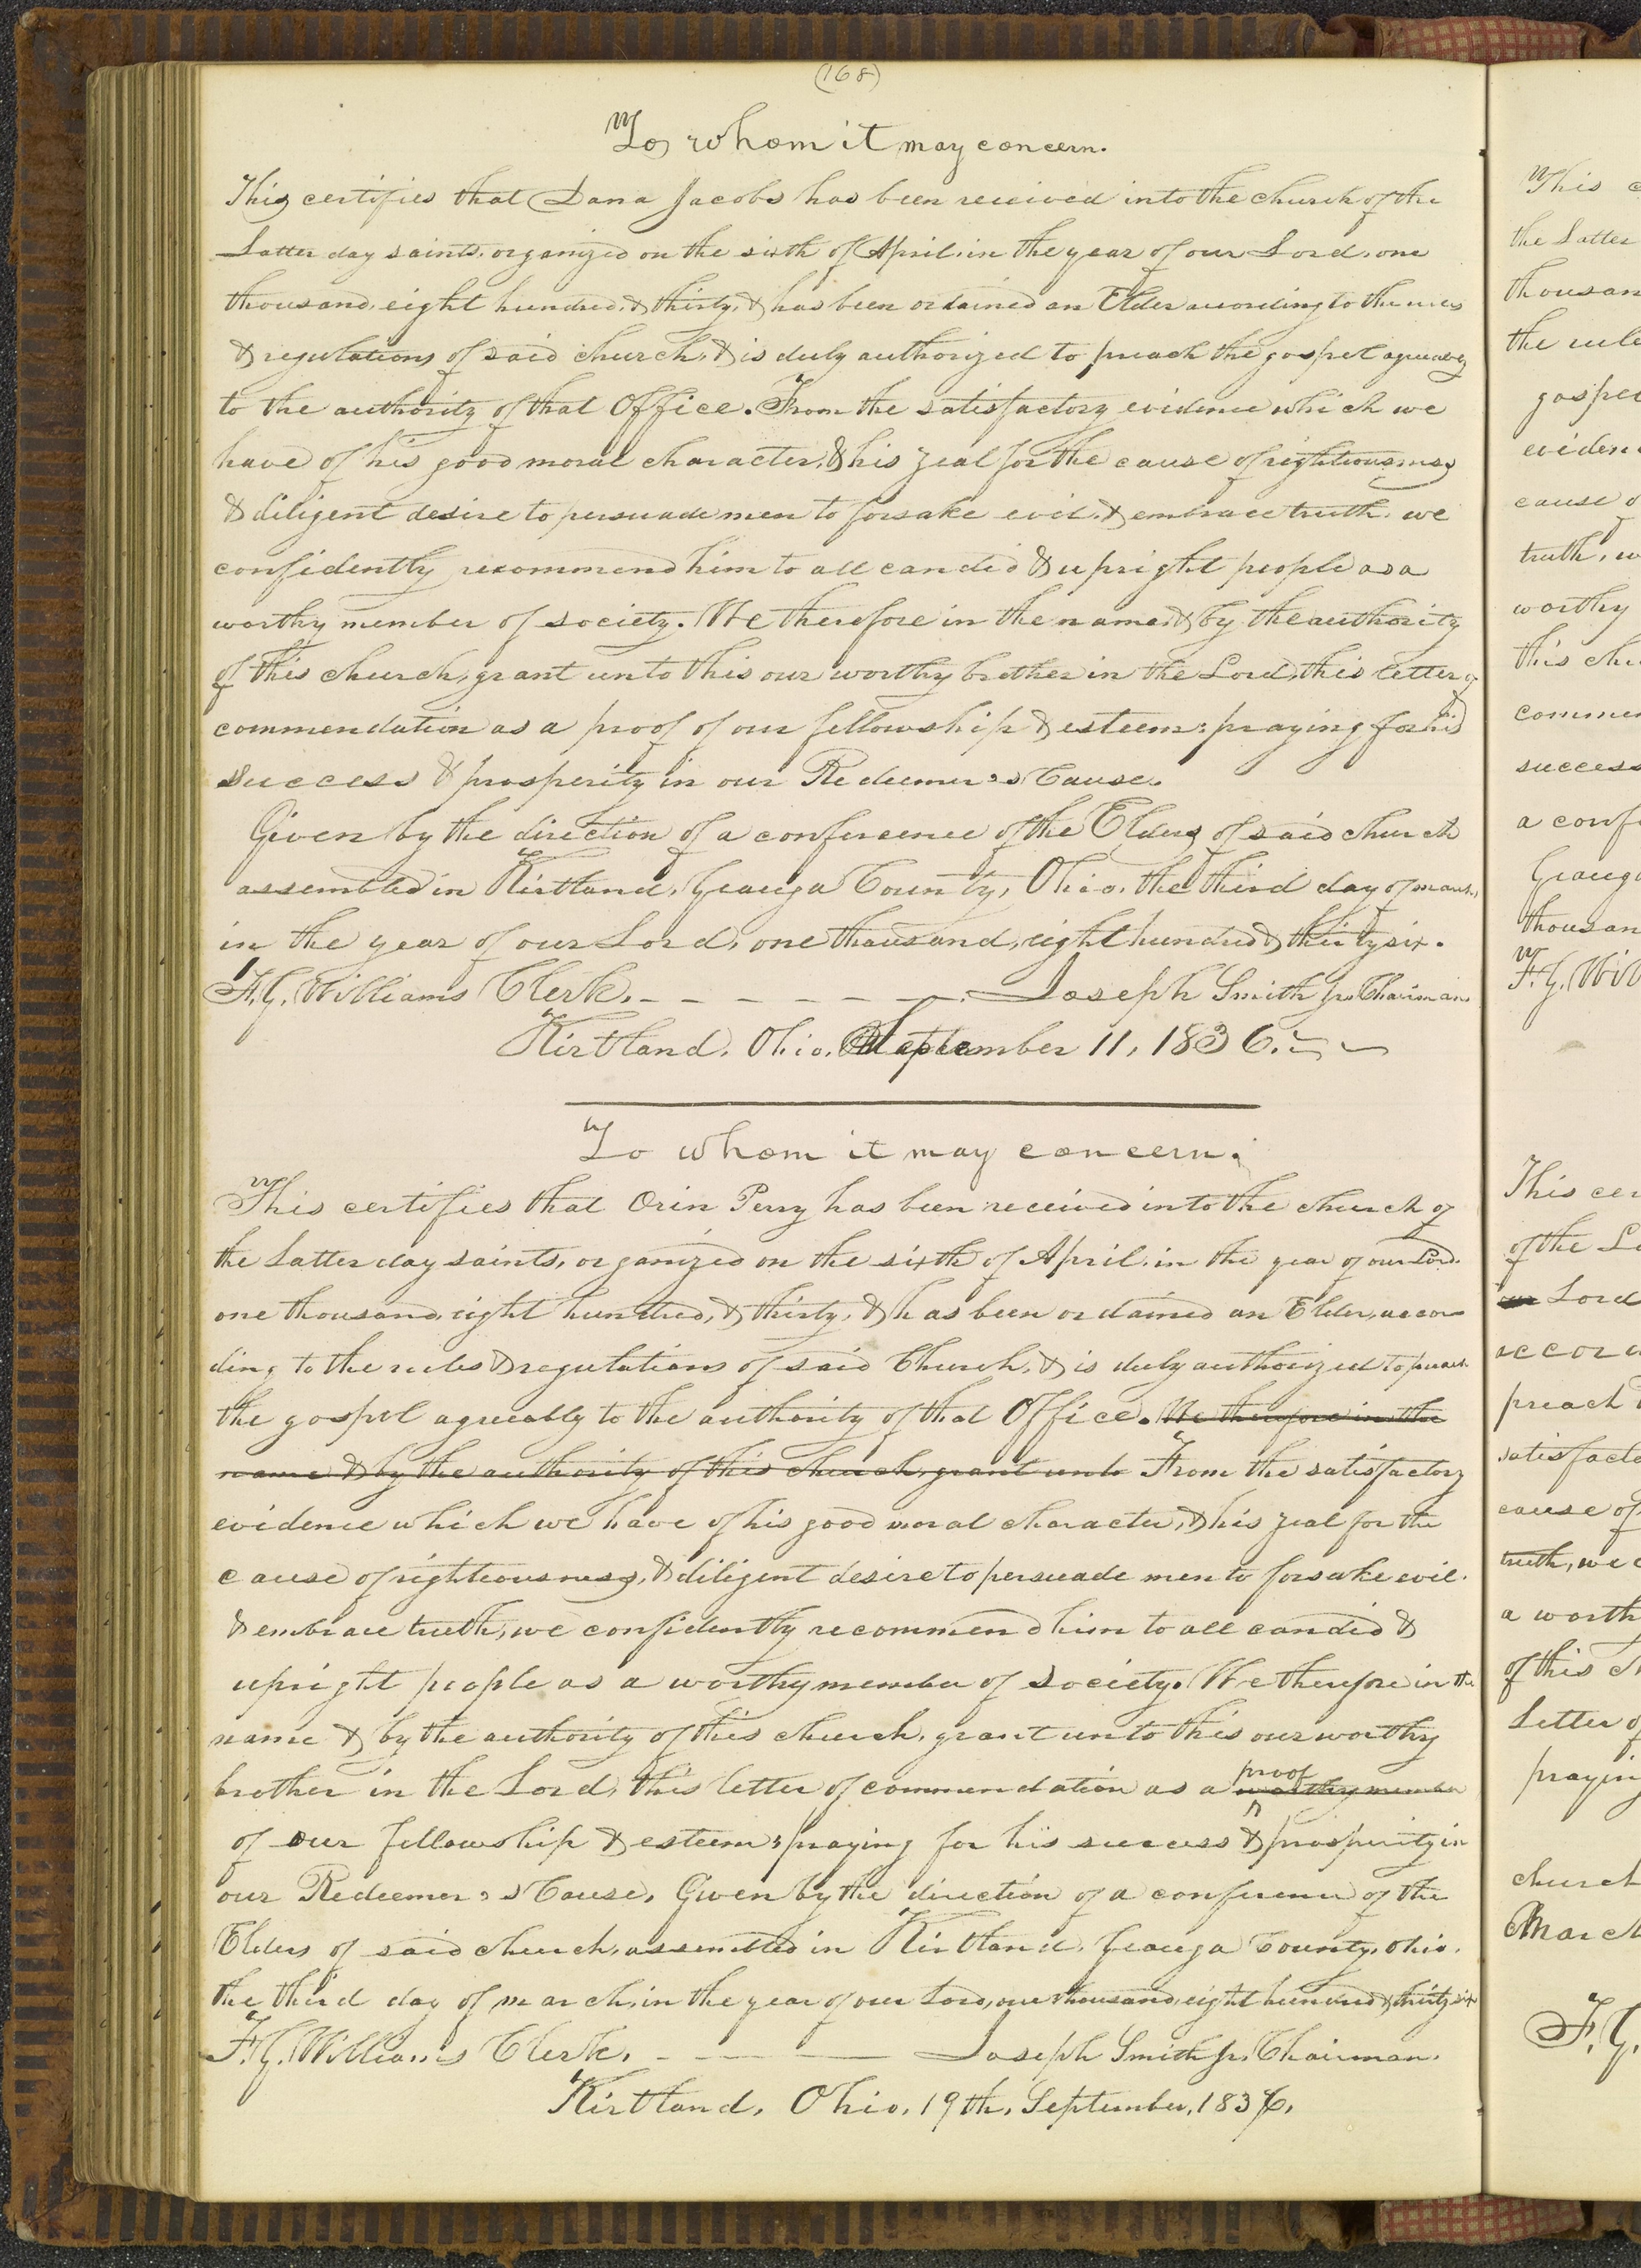 (168)
To whom it may concern.
This certifies that Dana Jacobs has been received into the church of the
Latter day saints, organized on the sixth of April, in the year of our Lord, one
thousand, eight hundred, & thirty, & has been ordained an Elder according to the rules
& regulations of said church, & is duly authorized to preach the gospel agreeably
to the authority of that Office. From the satisfactory evidence which we
have of his good moral character, & his zeal for the cause of righteousness
& diligent desire to persuade men to forsake evil, & embrace truth, we
confidently recommend him to all candid & upright people as a
worthy member of society. We therefore in the name, & by the authority
of this church, grant unto this our worthy brother in the Lord, this letter of
commendation as a proof of our fellowship & esteem: praying for his
success & prosperity in our Redeemer's Cause.
Given by the direction of a conference of the Elders of said church
assembled in Kirtland, Geauga County, Ohio, the third day of march,
in the year of our Lord, one thousand, eight hundred & thirty six.
F. G. Williams Clerk. – – – – – – – Joseph Smith jr. Chairman.
Kirtland, Ohio, September 11, 1836.
To whom it may concern.
This certifies that Orin Perry has been received into the church of
the Latter day saints, organized on the sixth of April, in the year of our Lord.
one thousand, eight hundred, & thirty, & has been ordained an Elder, accor-
ding to the rules & regulations of said Church, & is duly authorized to preach
the gospel agreeably to the authority of that Office. We therefore in the
name & by the authority of this church, grant unto From the satisfactory
evidence which we have of his good moral character, & his zeal for the
cause of righteousness, & diligent desire to persuade men to forsake evil.
& embrace truth, we confidently recommend him to all candid &
upright people as a worthy member of society. We therefore in the
name & by the authority of this church, grant unto this our worthy
brother in the Lord, this letter of commendation as a proof worthy member
of our fellowship & esteem: praying for his success & prosperity in
our Redeemer's Cause. Given by the direction of a conference of the
Elders of said church, assembled in Kirtland, Geauga County, Ohio.
the third day of march, in the year of our Lord, one thousand, eight hundred & thirty six
F. G. Williams Clerk. – – – Joseph Smith jr. Chairman.
Kirtland, Ohio, 19th, September, 1836.
This
the Latter
thousan
the rule
gospel
eviden
cause o
truth, w
worthy
this chu
commen
success
a confe
Geauga
thousan
F. G. Wil
This cer
of the La
Lord
accord
preach
satisfacto
cause of
truth, we c
a worth
of this ch
Letter of
praying
church
March
F. G.